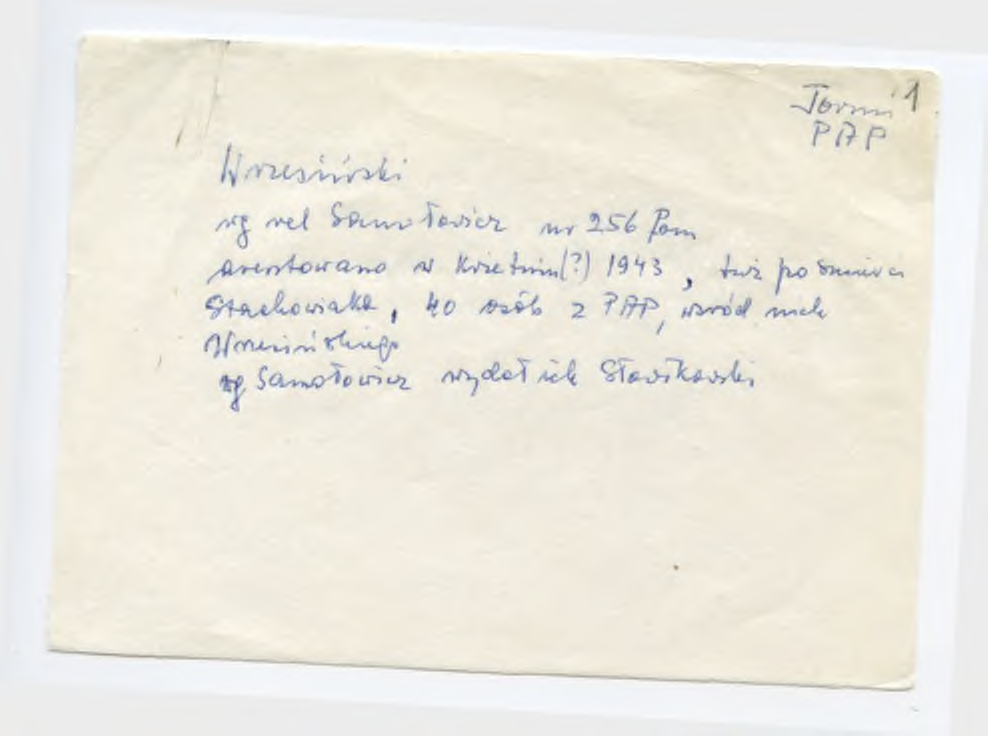 Toruń 1
PAP
Wrzesiński
wg rel Samotowicz nr 256 Pom
aresztowano w kwietniu(?) 1943, tuż po śmierci
Stachowiaka, 40 osób z PAP, wśród nich
Wrzesińskiego
wg Samotowicz wydał ich Sławikowski